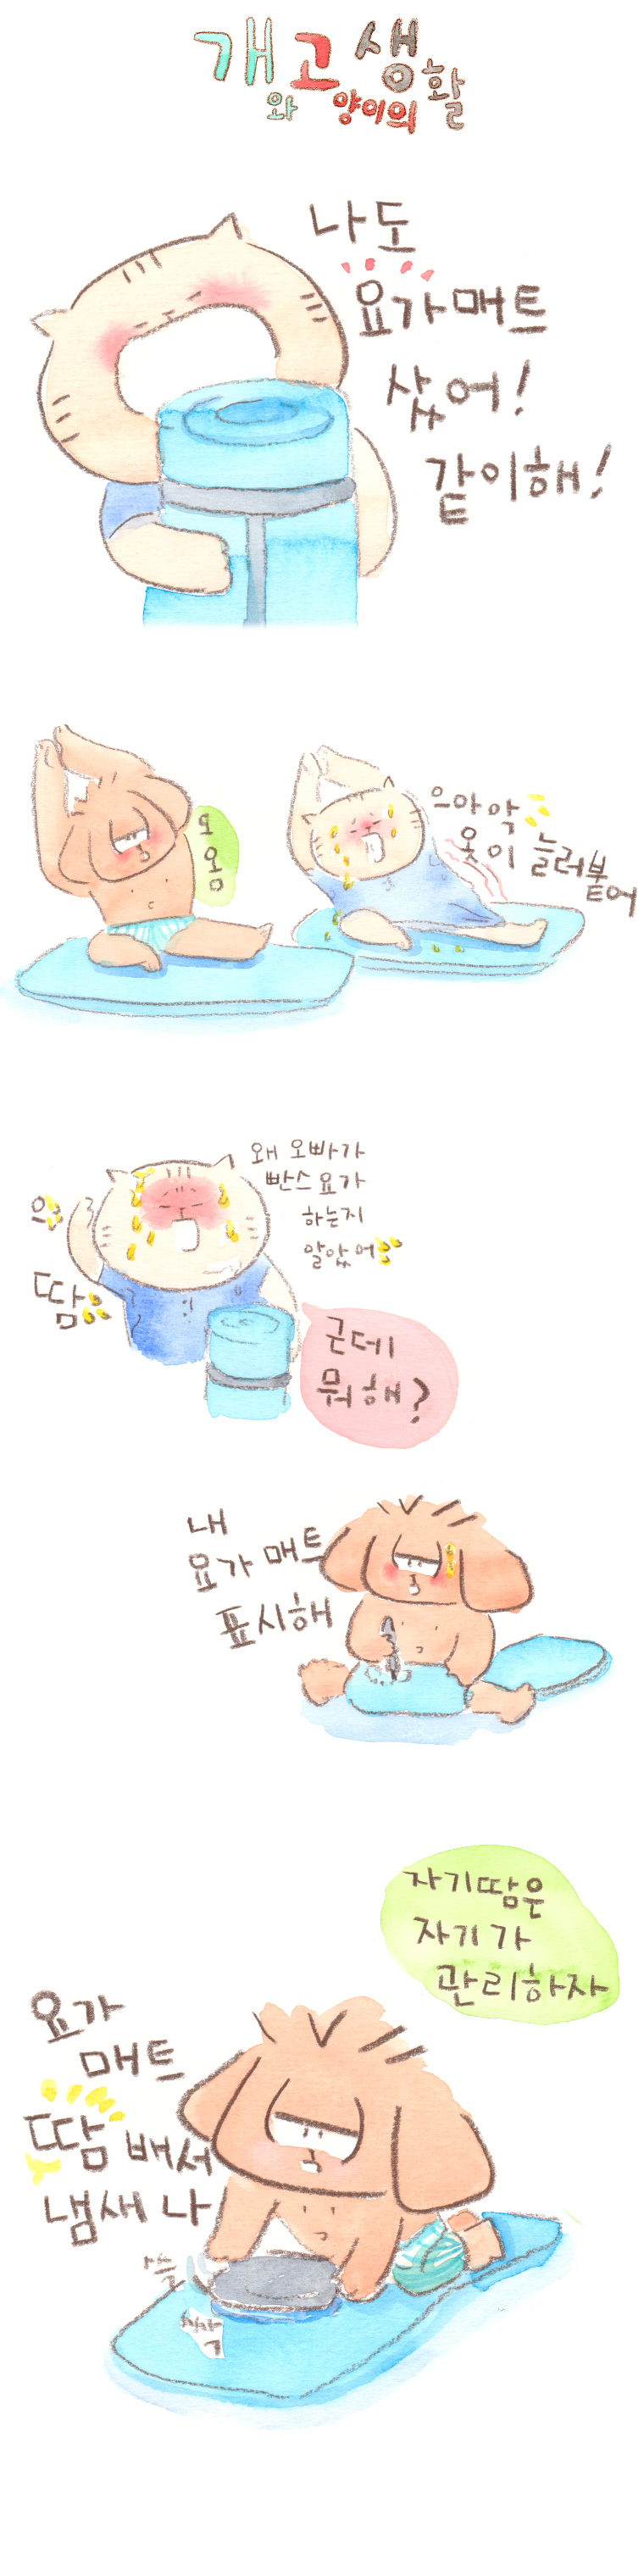 개고생
와 양이의 활
나도
요가매트
샀어!
같이해!
오
옴
으아악
옷이 눌러붙어
왜 오빠가
빤스요가
하는지
알았어
으
땀
근데
뭐해?
내
요가 매트
표시해
자기땀은
자기가
관리하자
요가
매트
땀 배서
냄새 나